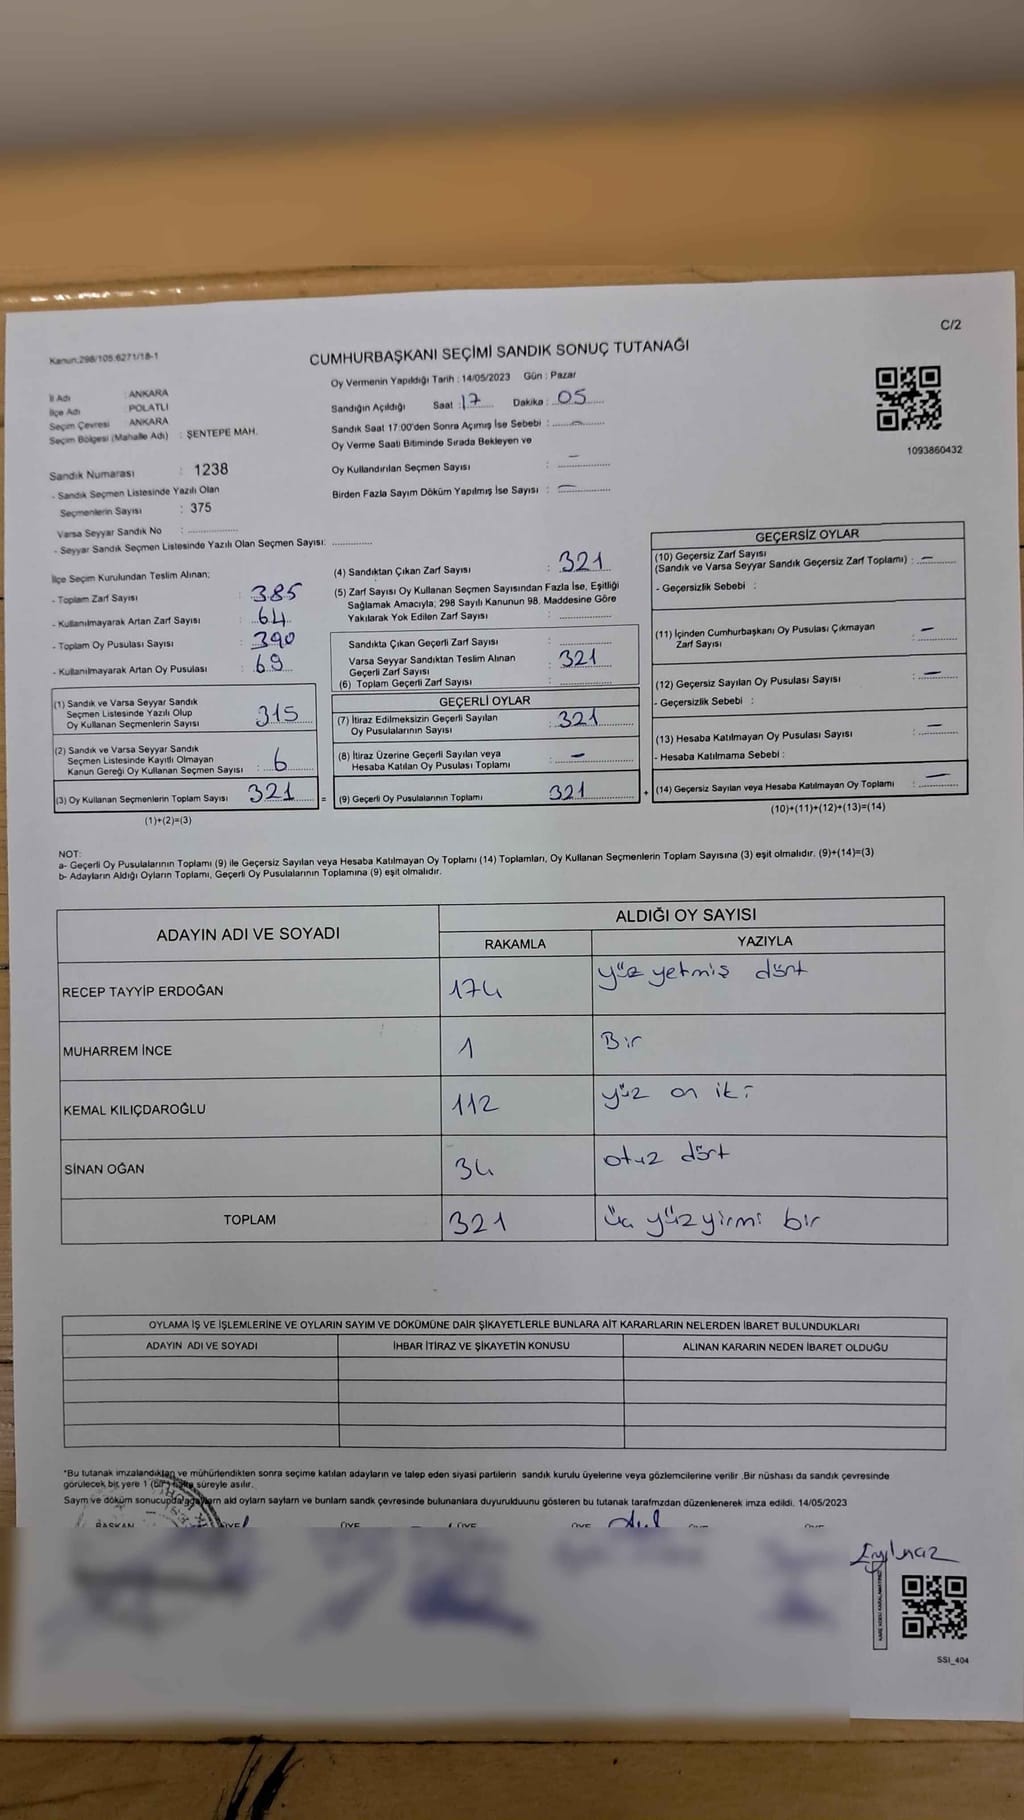 C/2
Kanun.298/105.6271/18-1
CUMHURBAŞKANI SEÇİMİ SANDIK SONUÇ TUTANAĞI
İl Adı : ANKARA
İlçe Adı : POLATLI
Seçim Çevresi : ANKARA
Seçim Bölgesi (Mahalle Adı) : ŞENTEPE MAH.
Sandık Numarası : 1238
- Sandık Seçmen Listesinde Yazılı Olan
Seçmenlerin Sayısı : 375
Varsa Seyyar Sandık No :
- Seyyar Sandık Seçmen Listesinde Yazılı Olan Seçmen Sayısı:
Oy Vermenin Yapıldığı Tarih : 14/05/2023 Gün : Pazar
Sandığın Açıldığı Saat : 17 Dakika : 05
Sandık Saat 17:00'den Sonra Açımış İse Sebebi : —
Oy Verme Saati Bitiminde Sırada Bekleyen ve
Oy Kullandırılan Seçmen Sayısı : —
Birden Fazla Sayım Döküm Yapılmış İse Sayısı : —
1093860432
İlçe Seçim Kurulundan Teslim Alınan;
- Toplam Zarf Sayısı : 385
- Kullanılmayarak Artan Zarf Sayısı : 64
- Toplam Oy Pusulası Sayısı : 390
- Kullanılmayarak Artan Oy Pusulası : 69
(1) Sandık ve Varsa Seyyar Sandık
Seçmen Listesinde Yazılı Olup
Oy Kullanan Seçmenlerin Sayısı : 315
(2) Sandık ve Varsa Seyyar Sandık
Seçmen Listesinde Kayıtlı Olmayan
Kanun Gereği Oy Kullanan Seçmen Sayısı : 6
(3) Oy Kullanan Seçmenlerin Toplam Sayısı : 321 =
(1)+(2)=(3)
(4) Sandıktan Çıkan Zarf Sayısı : 321
(5) Zarf Sayısı Oy Kullanan Seçmen Sayısından Fazla İse, Eşitliği
Sağlamak Amacıyla; 298 Sayılı Kanunun 98. Maddesine Göre
Yakılarak Yok Edilen Zarf Sayısı :
Sandıkta Çıkan Geçerli Zarf Sayısı :
Varsa Seyyar Sandıktan Teslim Alınan : 321
Geçerli Zarf Sayısı
(6) Toplam Geçerli Zarf Sayısı :
GEÇERLİ OYLAR
(7) İtiraz Edilmeksizin Geçerli Sayılan : 321
Oy Pusulalarının Sayısı
(8) İtiraz Üzerine Geçerli Sayılan veya
Hesaba Katılan Oy Pusulası Toplamı : —
(9) Geçerli Oy Pusulalarının Toplamı 321 +
GEÇERSİZ OYLAR
(10) Geçersiz Zarf Sayısı
(Sandık ve Varsa Seyyar Sandık Geçersiz Zarf Toplamı) : —
- Geçersizlik Sebebi :
(11) İçinden Cumhurbaşkanı Oy Pusulası Çıkmayan
Zarf Sayısı : —
(12) Geçersiz Sayılan Oy Pusulası Sayısı : —
- Geçersizlik Sebebi :
(13) Hesaba Katılmayan Oy Pusulası Sayısı : —
- Hesaba Katılmama Sebebi :
(14) Geçersiz Sayılan veya Hesaba Katılmayan Oy Toplamı : —
(10)+(11)+(12)+(13)=(14)
NOT:
a- Geçerli Oy Pusulalarının Toplamı (9) ile Geçersiz Sayılan veya Hesaba Katılmayan Oy Toplamı (14) Toplamları, Oy Kullanan Seçmenlerin Toplam Sayısına (3) eşit olmalıdır. (9)+(14)=(3)
b- Adayların Aldığı Oyların Toplamı, Geçerli Oy Pusulalarının Toplamına (9) eşit olmalıdır.
ADAYIN ADI VE SOYADI ALDIĞI OY SAYISI
RAKAMLA YAZIYLA
RECEP TAYYİP ERDOĞAN 174 yüz yetmiş dört
MUHARREM İNCE 1 Bir
KEMAL KILIÇDAROĞLU 112 yüz on iki
SİNAN OĞAN 34 otuz dört
TOPLAM 321 üç yüz yirmi bir
OYLAMA İŞ VE İŞLEMLERİNE VE OYLARIN SAYIM VE DÖKÜMÜNE DAİR ŞİKAYETLERLE BUNLARA AİT KARARLARIN NELERDEN İBARET BULUNDUKLARI
ADAYIN ADI VE SOYADI İHBAR İTİRAZ VE ŞİKAYETİN KONUSU ALINAN KARARIN NEDEN İBARET OLDUĞU
*Bu tutanak imzalandıktan ve mühürlendikten sonra seçime katılan adayların ve talep eden siyasi partilerin sandık kurulu üyelerine veya gözlemcilerine verilir .Bir nüshası da sandık çevresinde
görülecek bir yere 1 (bir) hafta süreyle asılır.
Sayım ve döküm sonucupda ald oylarn saylarn ve bunlarn sandk çevresinde bulunanlara duyurulduunu gösteren bu tutanak tarafmzdan düzenlenerek imza edildi. 14/05/2023
BAŞKAN ÜYE ÜYE ÜYE ÜYE
Eyılmaz
SSI_404